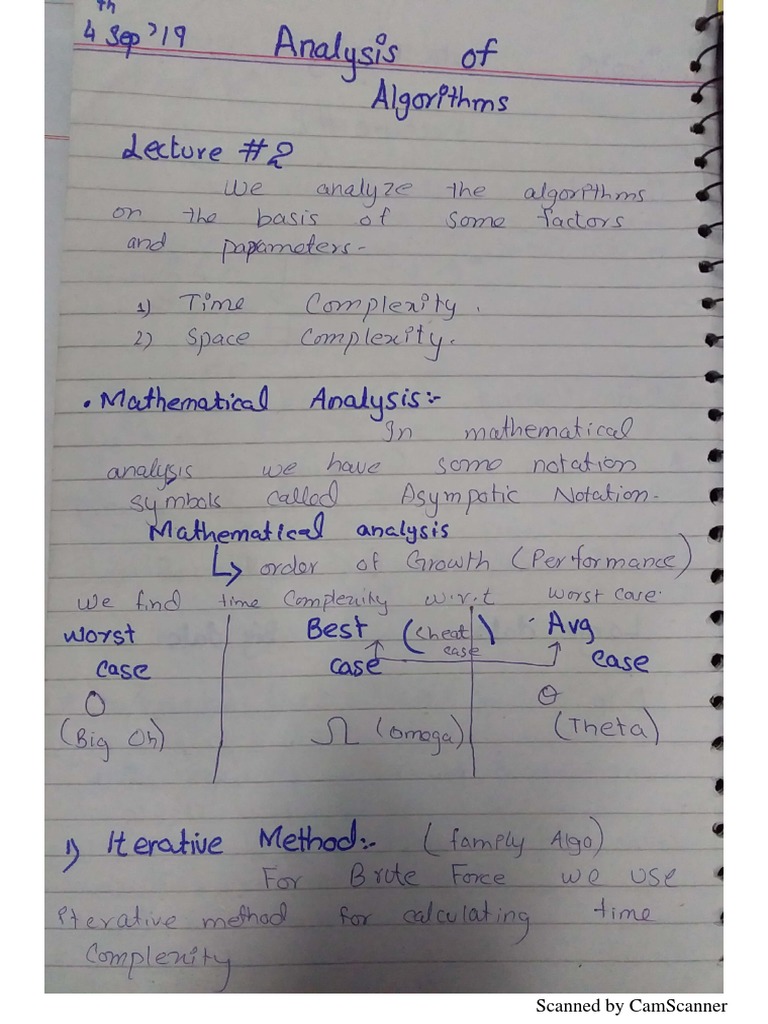 4th Sep'19 Analysis of
Algorithms
Lecture #2
We analyze the algorithms
on the basis of some factors
and papameters-
1) Time Complexity.
2) Space Complexity.
• Mathematical Analysis:-
In mathematical
analysis we have some notation
symbols called Asympotic Notation-
Mathematical analysis
↳ order of Growth (Performance)
We find time Complexity w.r.t worst case.
Worst Best (Cheat case) Avg
case case case
O Ɵ
(Big Oh) Ω (omega) (Theta)
1) Iterative Method:- (famply Algo)
For Brute Force we use
iterative method for calculating time
Complexity
Scanned by CamScanner